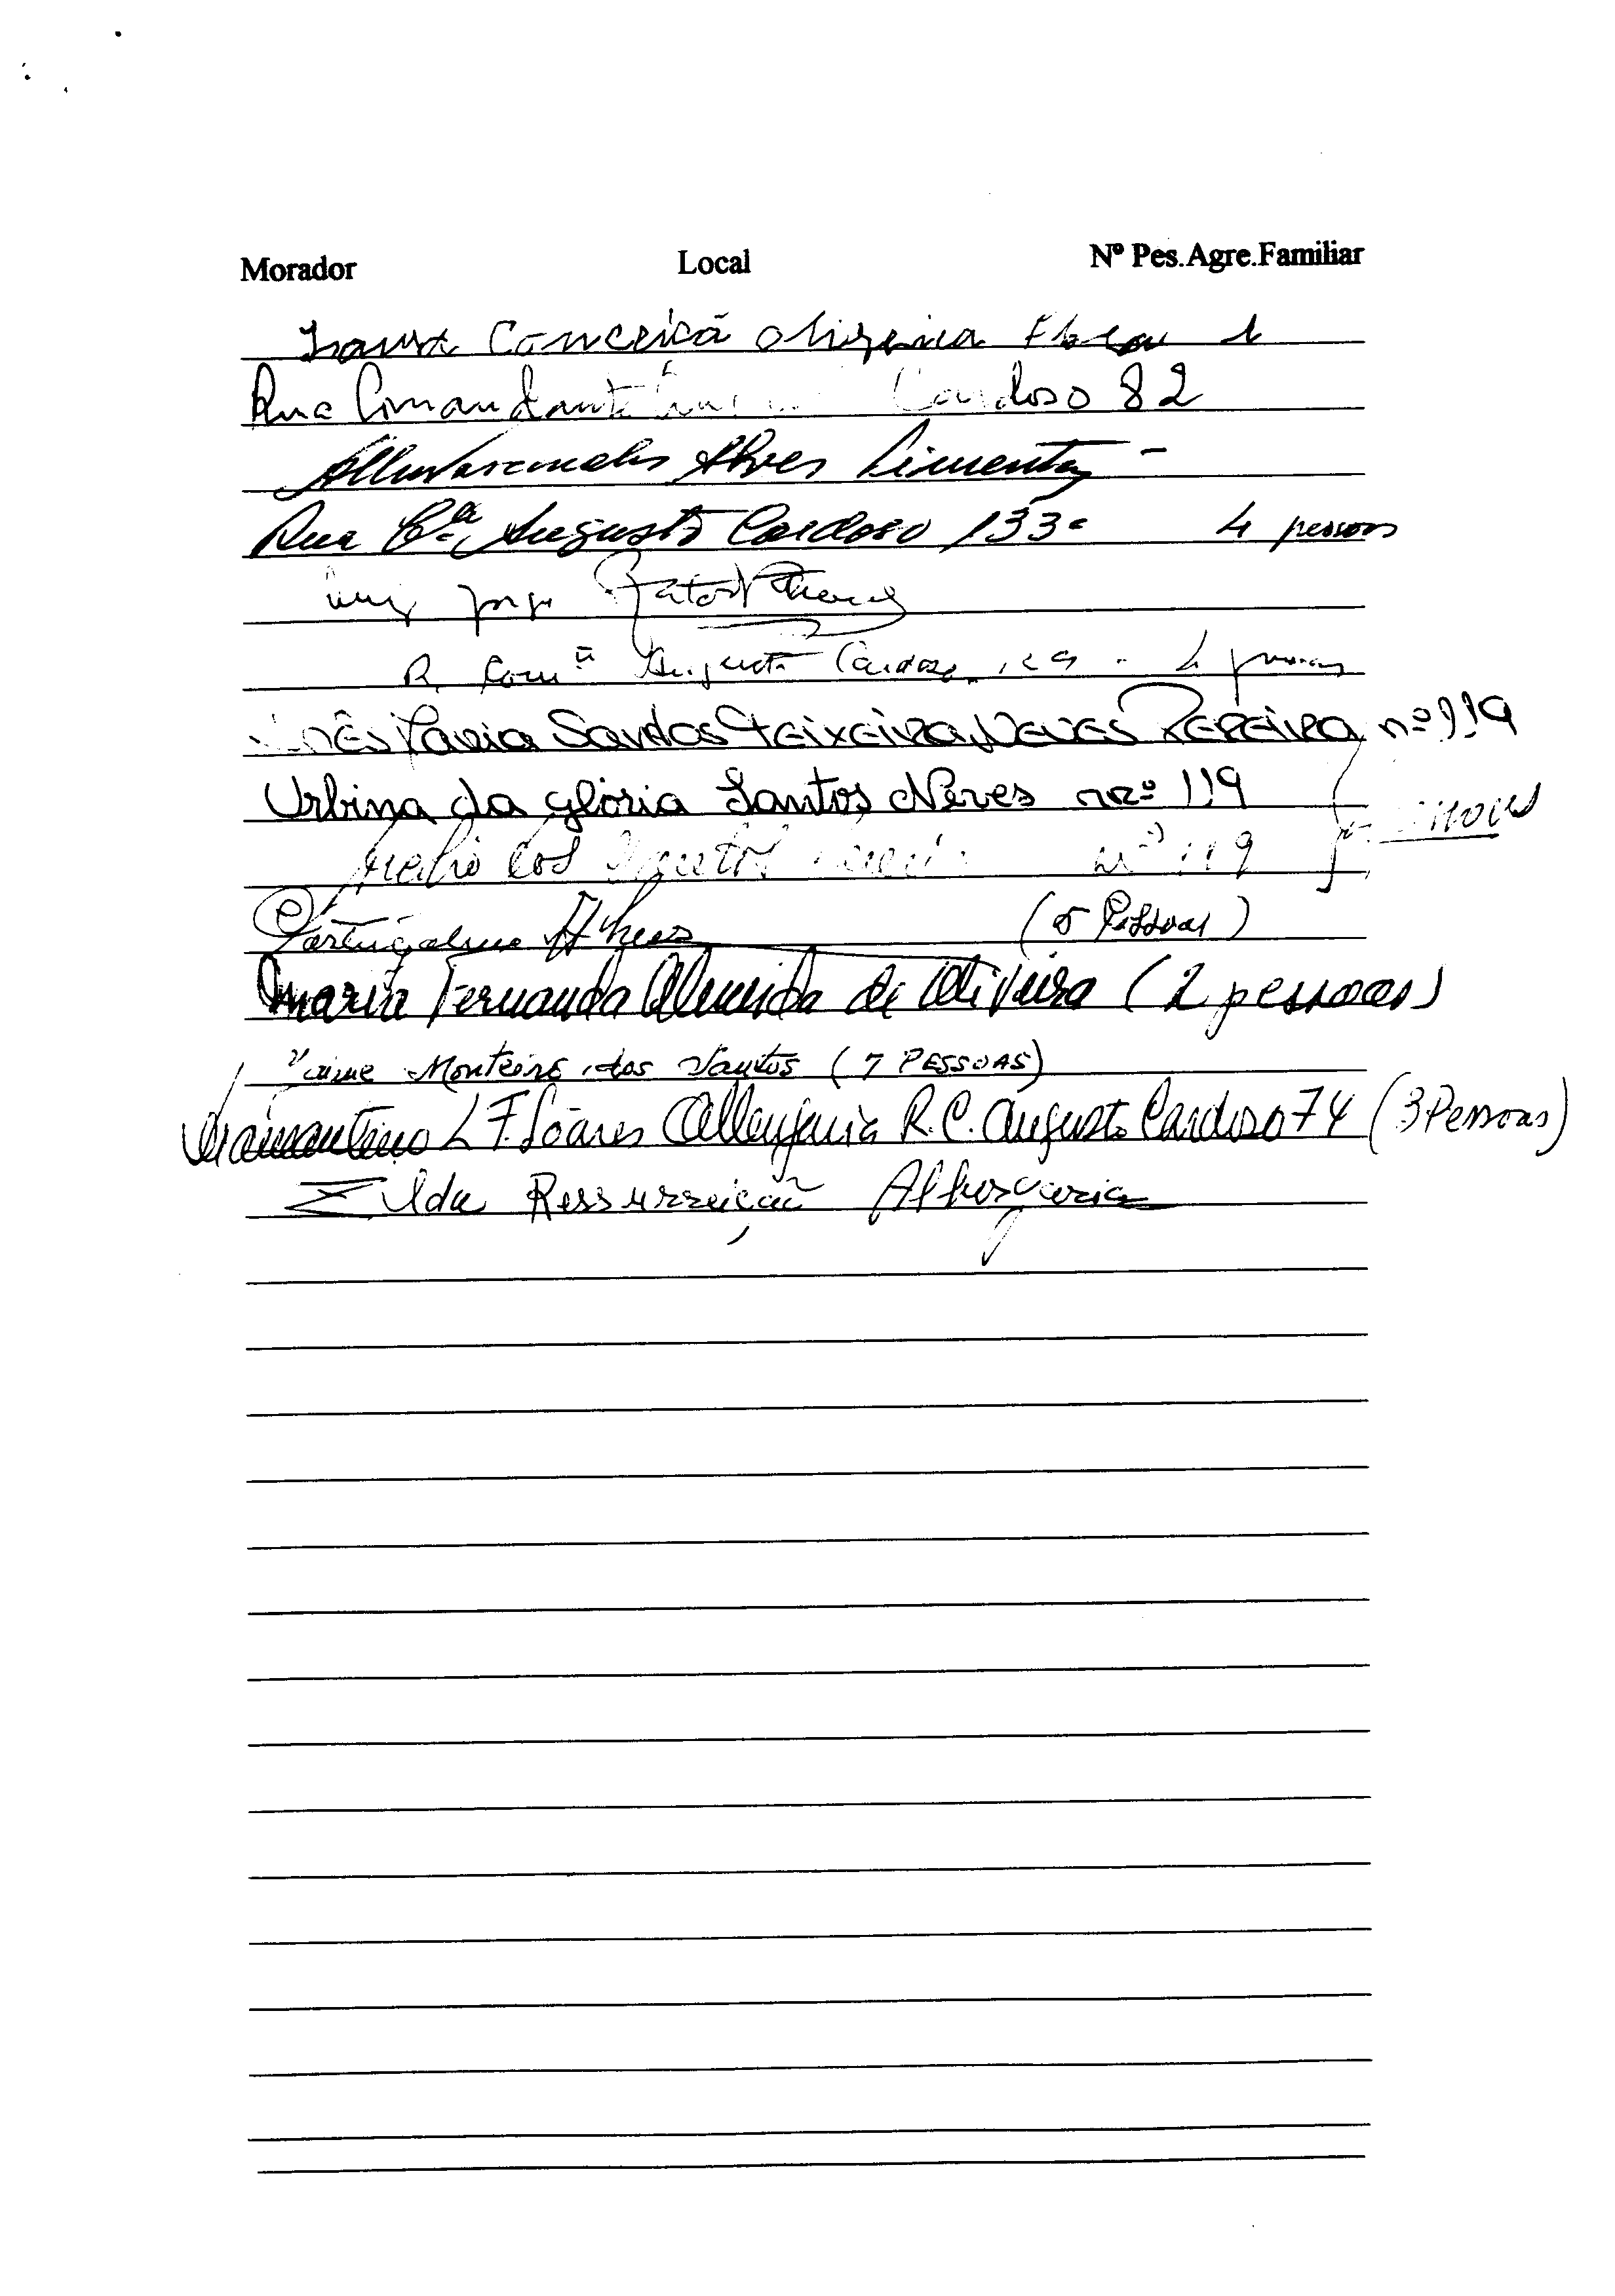 Morador Local Nº Pes.Agre.Familiar
Conceicã Oliveira 1
Rua Comandante Cardoso 82
Alves Pimenta
Rua C.a Augusto Cardoso 133 4 pessoas
Luiz Jorge
R. Com.te Augusto Cardoso 129 - 4 pessoas
Inês Maria Santos Teixeira Neves Pereira nº 119
Urbina da Glória Santos Neves nº 119
dos Santos nº 119
(5 Pessoas)
Maria Fernanda Almeida de Oliveira (2 pessoas)
Jaime Monteiro dos Santos (7 PESSOAS)
Diamantino L F. Soares R. C. Augusto Cardoso 74 (3 Pessoas)
Zilda Ressurreição Albergaria